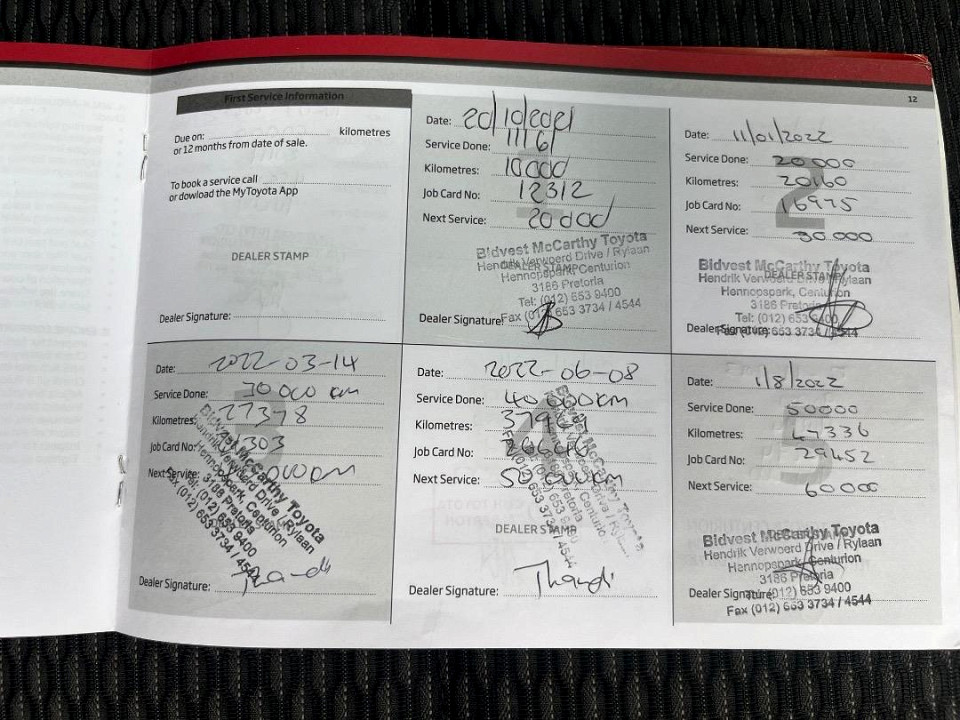 12
First Service Information
Due on: kilometres
or 12 months from date of sale.
To book a service call
or dowload the MyToyota App
DEALER STAMP
Dealer Signature:
Date:
Service Done:
Kilometres: 10000
Job Card No: 12312
Next Service: 20000
Bidvest McCarthy Toyota
Hendrik Verwoerd Drive / Rylaan
DEALER STAMP
Hennopspark, Centurion
3186 Pretoria
Tel: (012) 653 9400
Fax (012) 653 3734 / 4544
Dealer Signature:
Date: 11/01/2022
Service Done: 20 000
Kilometres: 20160
Job Card No: 16975
Next Service: 30 000
Bidvest McCarthy Toyota
DEALER STAMP
Hendrik Verwoerd Drive / Rylaan
Hennopspark, Centurion
3186 Pretoria
Tel: (012) 653 9400
Fax (012) 653 3734 / 4544
Dealer Signature:
Date: 2022-03-14
Service Done: 30 000 km
Kilometres: 27378
Job Card No: 303
Next Service:
Bidvest McCarthy Toyota
Hendrik Verwoerd Drive / Rylaan
Hennopspark, Centurion
3186 Pretoria
Tel: (012) 653 9400
Fax (012) 653 3734 / 4544
Dealer Signature: Thandi
Date: 2022-06-08
Service Done: 40 000km
Kilometres:
Job Card No:
Next Service: 50 000km
DEALER STAMP
Dealer Signature: Thandi
Date: 1/8/2022
Service Done: 50000
Kilometres: 47336
Job Card No: 29452
Next Service: 60 000
Bidvest McCarthy Toyota
Hendrik Verwoerd Drive / Rylaan
Hennopspark, Centurion
3186 Pretoria
Dealer Signature:
Tel: (012) 653 9400
Fax (012) 653 3734 / 4544